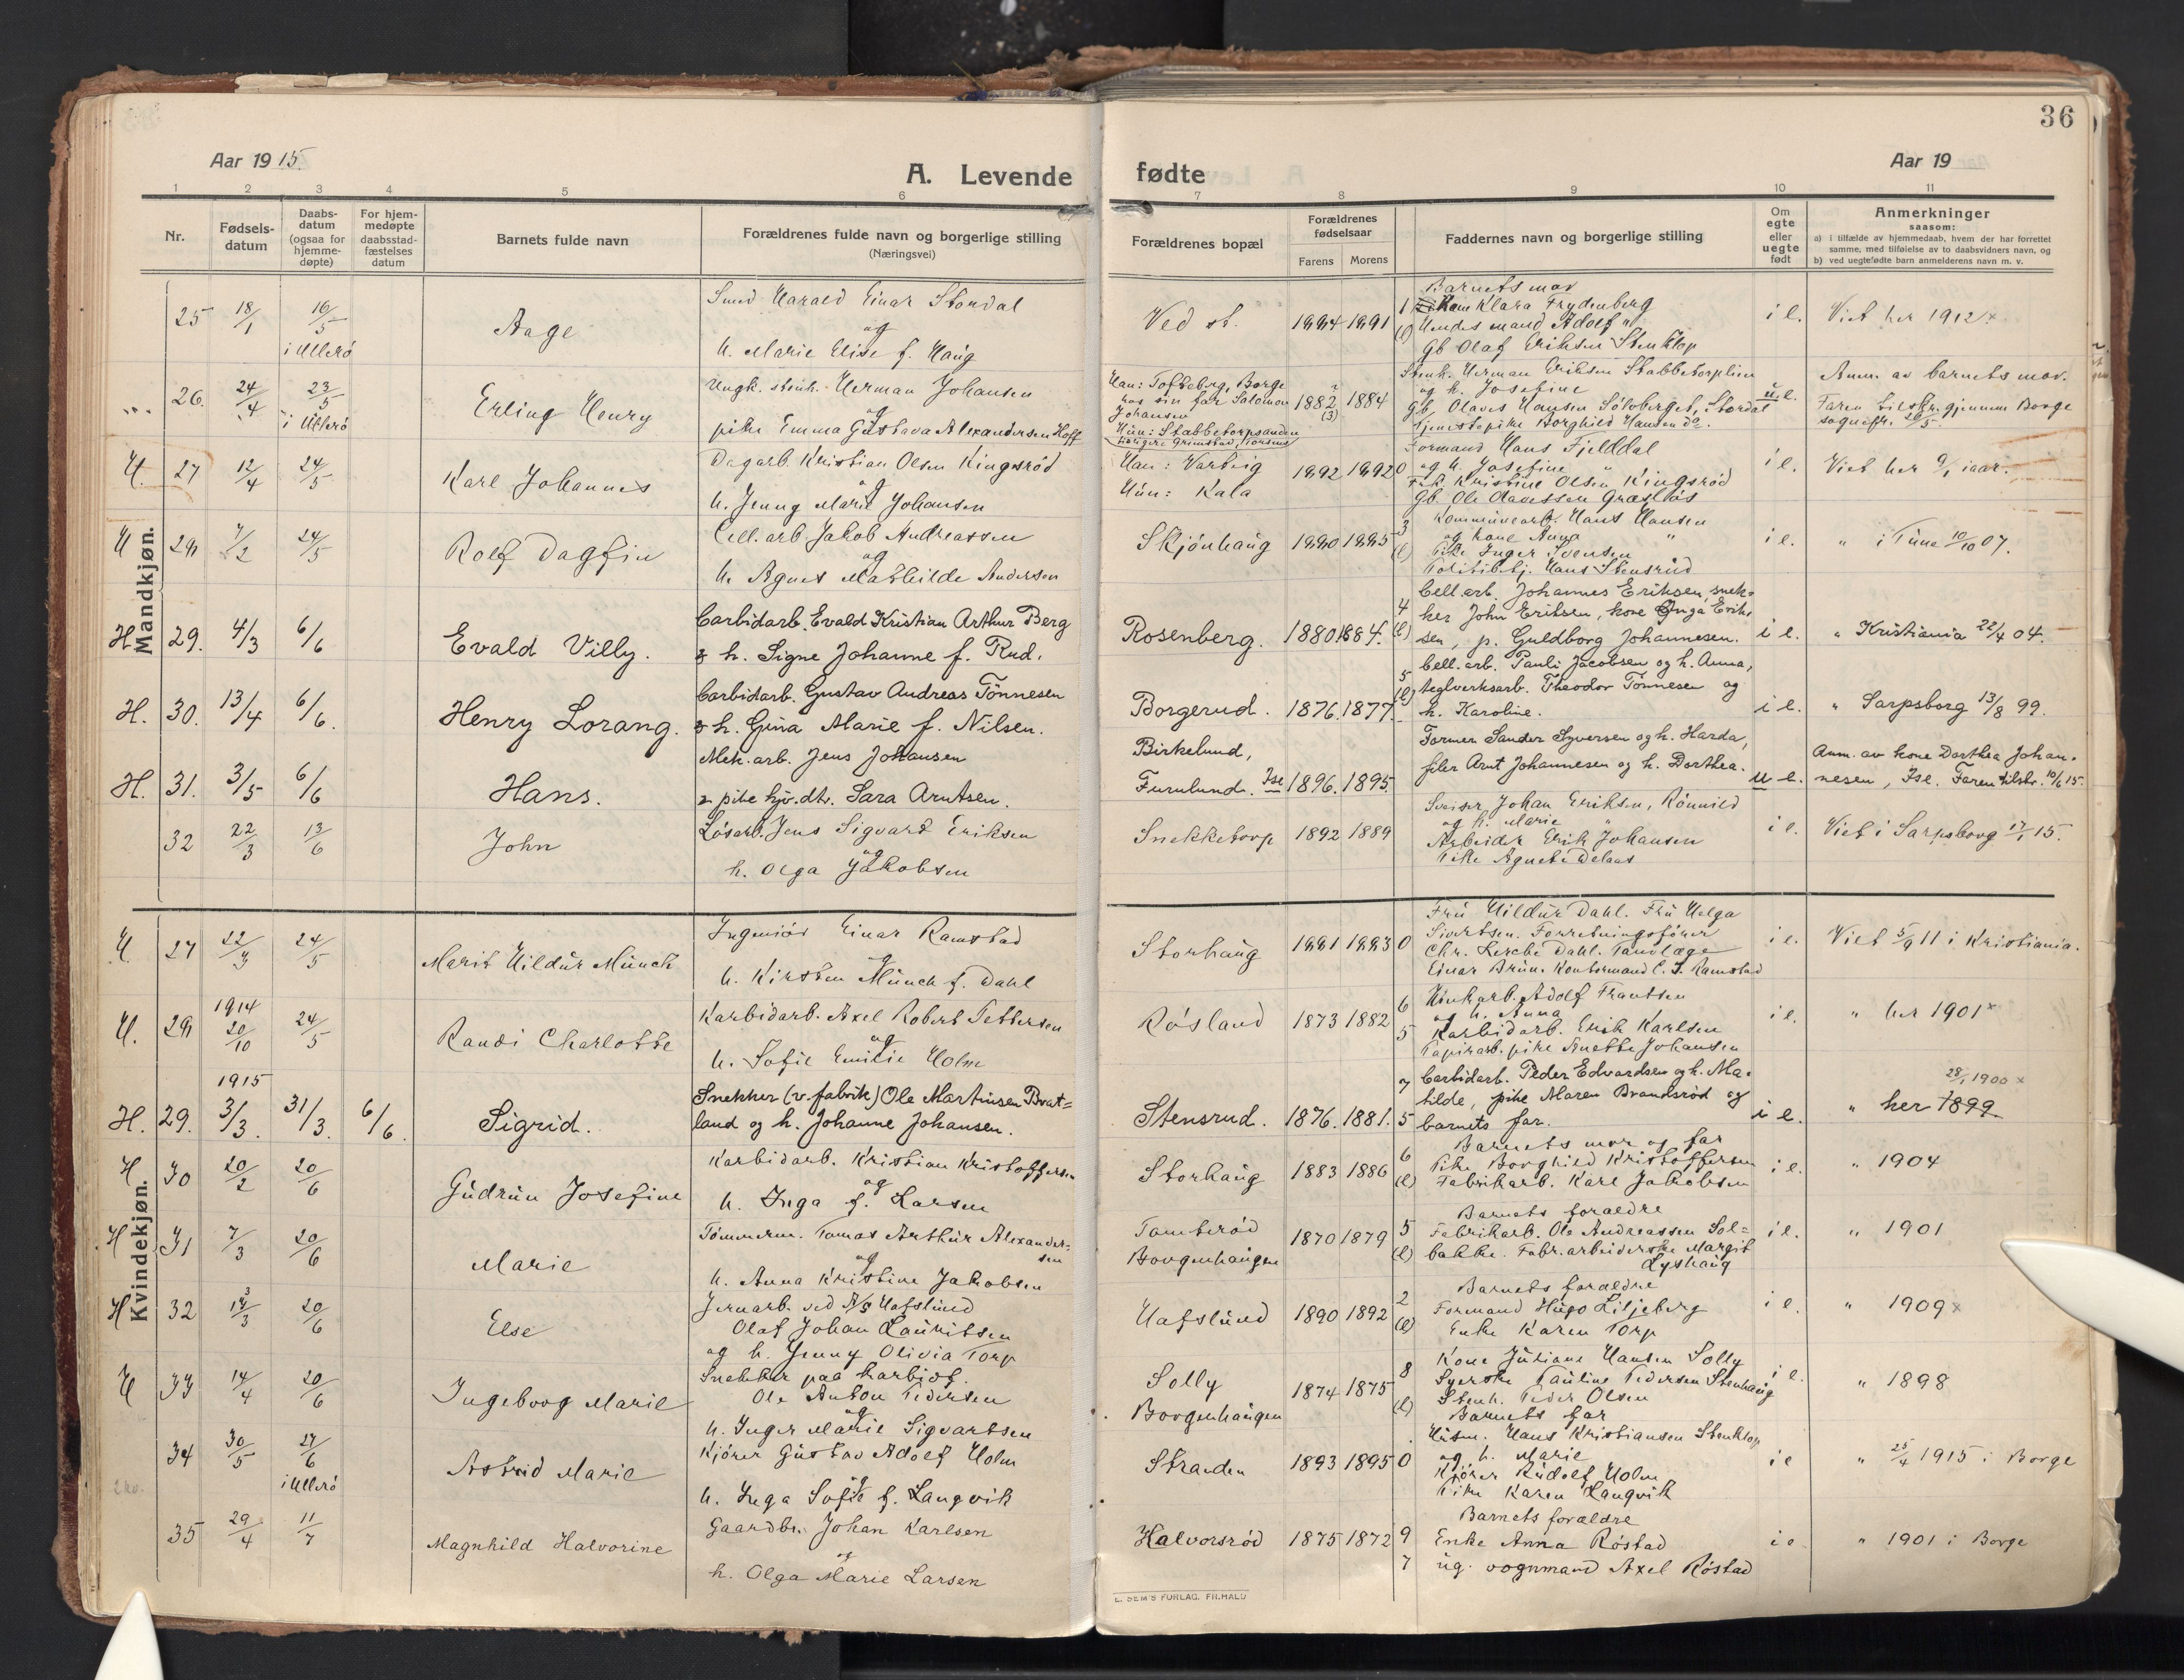 36
Aar 1915.
A. Levende fødte
Aar 19
1 2 3 4 5 6 7 8 9 10 11
Nr.
Fødsels-
datum
Daabs-
datum
(ogsaa for
hjemme-
døpte)
For hjem-
medøpte
daabsstad-
fæstelses
datum
Barnets fulde navn
Forældrenes fulde navn og borgerlige stilling
(Næringsvei)
Forældrenes bopæl
Forældrenes
fødselsaar
Farens Morens
Faddernes navn og borgerlige stilling
Om
egte
eller
uegte
født
Anmerkninger
saasom:
a) i tilfælde av hjemmedaab, hvem der har forrettet
samme, med tilføielse av to daabsvidners navn, og
b) ved uegtefødte barn anmelderens navn m. v.
Mandkjøn.
25 18/1 16/5 i Ullerø
Aage
Smed Harald Einar Stordal
og
h. Marie Elise f. Haug
Ved st.
Barnets mor
Klara Frydenberg
Hendes mand Adolf "
Gb Olaf Eriksen Stenklop
i e.
Viet her 1912
26. 24/4 23/5 i Ullerø
Erling Henry
Ungk. stenh. Herman Johansen
og
pike Emma Gustava Alexandersen Hoff
Han: Tofteberg, Borge
hos sin far Salomon
Johansen
Hun: Stabbetorpsanden
tidligere Grimstad, Torsnes
1882 1884
(3)
Stenh. Herman Eriksen Stabbetorplien
og h. Josefine
Gb. Olaves Hansen Sölvberget, Stordal
Tjenestepike Borghild Hansen do.
u.e.
Anm. av barnets mor.
Faren tilskr. gjennem Borge
sognepr. 26/5.
H. 27 12/4 24/5
Karl Johannes
Dagarb. Kristian Olsen Kingsrød
og
h. Jenny Marie Johansen
Han: Varteig
Hun: Kala
1892 1892 0
Formand Hans Fjelddal
og h. Josefine "
Frk. Kristine Olsen Kingsrød
Gb. Ole Olavessen Græslös
i e.
Viet her 9/1 iaar.
H 28 7/2 24/5
Rolf Dagfin
Cell. arb Jakob Andreassen
og
h. Agnes Mathilde Andersen
Skjönhaug
1880 1885 3
Kommunearb. Hans Hansen
og kone Anna "
Pike Inger Svensen
Politibetj. Hans Stensrud
i e.
" i Tune 10/10 07.
H 29. 4/3 6/6
Evald Villy.
Carbidarb. Evald Kristian Arthur Berg
& h. Signe Johanne f. Rud.
Rosenberg.
1880 1884. 4
Cell. arb. Johannes Eriksen, snek-
ker John Eriksen, kone Inga Erik-
sen, p. Guldborg Johannesen.
i e.
" Kristiania 22/4 04.
H. 30. 13/4 6/6.
Henry Lorang.
Carbidarb. Gustav Andreas Tönnesen
& h. Gina Marie f. Nilsen.
Borgerud.
1876. 1877. 5
Cell. arb. Pauli Jacobsen og h. Anna,
teglverksarb. Theodor Tönnesen og
h. Karoline.
i e.
" Sarpsborg 13/8 99.
H. 31. 3/5 6/6
Hans.
Mek. arb. Jens Johansen
& pike hjv. dtr. Sara Arntsen.
Birkelund,
Furulund. Ise
1896. 1895.
Former Sander Syversen og h. Harda,
filer Arnt Johannesen og h. Dorthea.
u e.
Anm. av kone Dorthea Johan-
nesen, Ise. Faren tilskr. 10/6 15.
32 22/3 13/6
John
Løsarb. Jens Sigvard Eriksen
og
h. Olga Jakobsen
Snekketorp
1892 1889
Sveiser Johan Eriksen, Rönnild
og h. Marie "
Arbeider Erik Johansen
Pike Agnete Delaas
i e.
Viet i Sarpsborg 17/1 15.
Kvindekjøn.
H. 27 22/3 24/5
Marit Hildur Münch
Ingeniör Einar Ramstad
og
h. Kirsten Münch f. Dahl
Storhaug
1881 1883 0
Fru Hildur Dahl. Fru Helga
Sivertsen. Forretningsfører
Chr. Lerche Dahl. Tandlæge
Einar Brun. Kontormand C. J. Ramstad
i e.
Viet 5/9 11 i Kristiania.
H. 28 1914 20/10 24/5
Randi Charlotte
Karbidarb. Axel Robert Pettersen
og
h. Sofie Emilie Holm
Røsland
1873 1882 6 5
Adolf Frantsen
og h. Anna
Karbidarb. Erik Karlsen
Papirarb. pike Anette Johansen
i e.
" her 1901
1915
H. 29. 3/3. 31/3. 6/6.
Sigrid.
Snekker (v. fabrik) Ole Martinsen Brat=
land og h. Johanne Johansen.
Stensrud.
1876. 1881. 7 5
Carbidarb. Peder Edvardsen og h. Ma-
tilde, pike Maren Brandsrød og
barnets far.
i e.
28/1 1900
" her 1899.
H 30 20/2 20/6
Gudrun Josefine
Karbidarb. Kristian Kristoffersen
og
h. Inga f. Larsen
Storhaug
1883 1886 6
Barnets mor og far
Pike Borghild Kristoffersen
Fabrikarb. Karl Jakobsen
i e.
" 1904
H 31 7/3 20/6
Marie
Tömmerm. Tomas Arthur Alexander=
sen
og
h. Anna Kristine Jakobsen
Tamberød
Borgenhaugen
1870 1879 5
Barnets forældre
Fabrikarb. Ole Andreassen Sol=
bakke. Fabr. arbeiderske Margit
Lyshaug
i e.
" 1901
H 32 13/3 20/6
Else
Jernarb. ved A/S Hafslund
Olaf Johan Lauritsen
og h. Jenny Olivia Torp
Hafslund
1890 1892 2
Barnets forældre
Formand Hugo Liljeberg
Enke Karen Torp
i e.
" 1909
H 33 14/4 20/6
Ingeborg Marie
Snekker paa karbid.
Ole Anton Pedersen
og
h. Inger Marie Sigvartsen
Solly
Borgenhaugen
1874 1875 8
Kone Juliane Hansen Solly
Syerske Pauline Pedersen Stenhaug
Stenh. Peder Olsen
Barnets far
i e.
" 1898
34 30/5 27/6 i Ullerø
Astrid Marie
Kjører Gustav Adolf Holm
og
h. Inga Sofie f. Langvik
Stranden
1893 1895 0
Husm. Hans Kristiansen Stenklop
og h. Marie
Kjører Rudolf Holm
Pike Karen Langvik
i e
" 25/4 1915 i Borge
35 29/4 11/7
Magnhild Halvorine
Gaardbr. Johan Karlsen
og
h. Olga Marie Larsen
Halvorsrød
1875 1872 9 7
Barnets forældre
Enke Anna Röstad
ug. vognmand Axel Röstad
i e
" 1901 i Borge
E. SEM'S FORLAG, FR.HALD